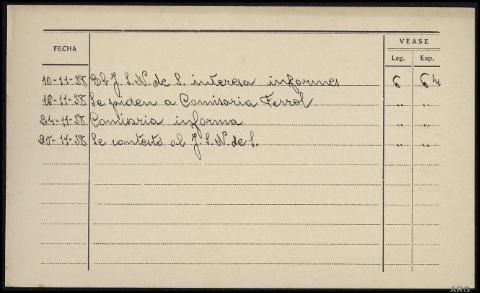 FECHA VEASE
Leg. Exp.
10-11-38 El J. S. N. de S. interesa informes 6 64
16-11-38 Se piden a Comisaria Ferrol " "
24-11-38 Comisaria informa " "
30-11-38 Se contesta al J. S. N. de S. " "